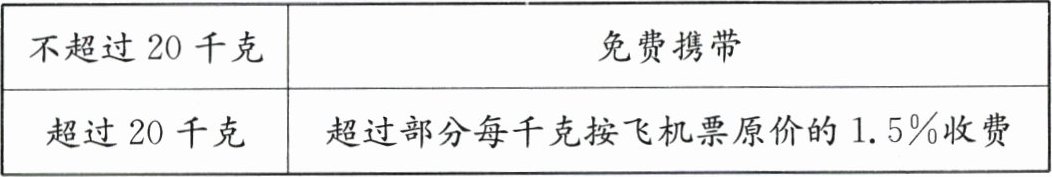 不超过 20 千克 免费携带
超过 20 千克 超过部分每千克按飞机票原价的 1.5%收费